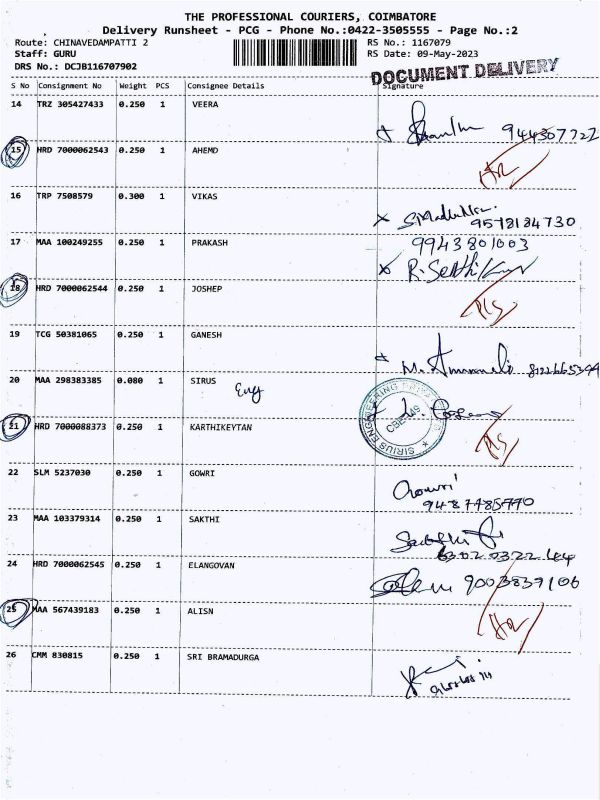 THE PROFESSIONAL COURIERS, COIMBATORE
Delivery Runsheet - PCG - Phone No.:0422-3505555 - Page No.:2
Route: CHINAVEDAMPATTI 2 RS No.: 1167079
Staff: GURU RS Date: 09-May-2023
DRS No.: DCJB116707902
DOCUMENT DELIVERY
S No Consignment No Weight PCS Consignee Details Signature
14 TRZ 305427433 0.250 1 VEERA
15 HRD 7000062543 0.250 1 AHEMD
16 TRP 7508579 0.300 1 VIKAS
9578184730
17 MAA 100249255 0.250 1 PRAKASH 9943801003
18 HRD 7000062544 0.250 1 JOSHEP
19 TCG 50381065 0.250 1 GANESH
20 MAA 298383385 0.080 1 SIRUS Eng
SIRIUS ENGINEERING PRIVATE
CBE-49
21 HRD 7000088373 0.250 1 KARTHIKEYTAN
22 SLM 5237030 0.250 1 GOWRI Gowri
9487485770
23 MAA 103379314 0.250 1 SAKTHI
24 HRD 7000062545 0.250 1 ELANGOVAN 9003839106
25 MAA 567439183 0.250 1 ALISN
26 CMM 830815 0.250 1 SRI BRAMADURGA